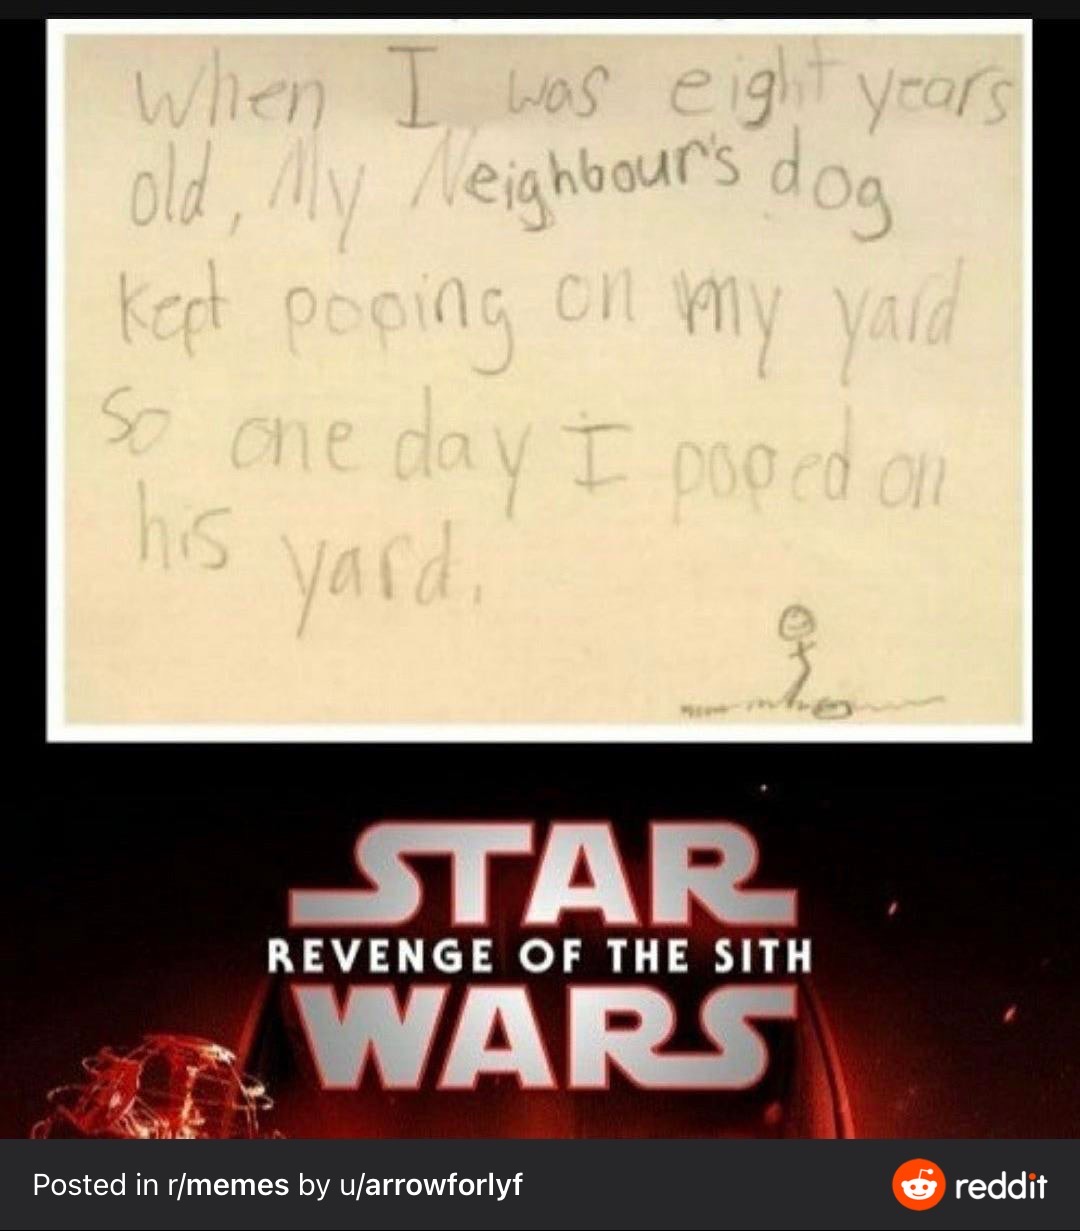 When I was eight years
old, My Neighbour's dog
kept poping on my yard
so one day I pooped on
his yard.
STAR
REVENGE OF THE SITH
WARS
Posted in r/memes by u/arrowforlyf
reddit